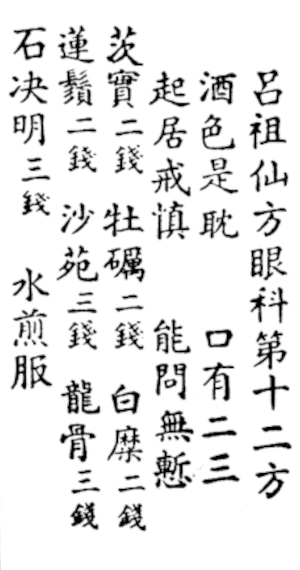 呂祖仙方眼科第十二方
酒色是耽 口有二三
起居戒慎 能問無慙
茨實二錢 牡礪二錢 白糜二錢
蓮鬚二錢 沙苑三錢 龍骨三錢
石决明三錢 水煎服